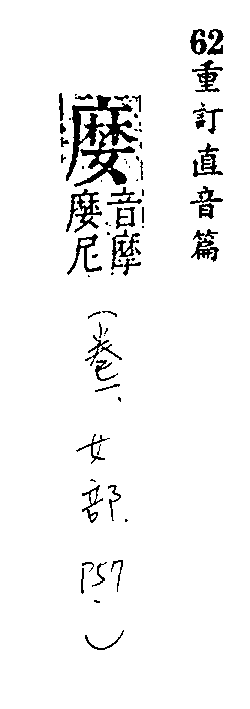 62重訂直音篇
音摩
尼
(卷一、女部、P57.)